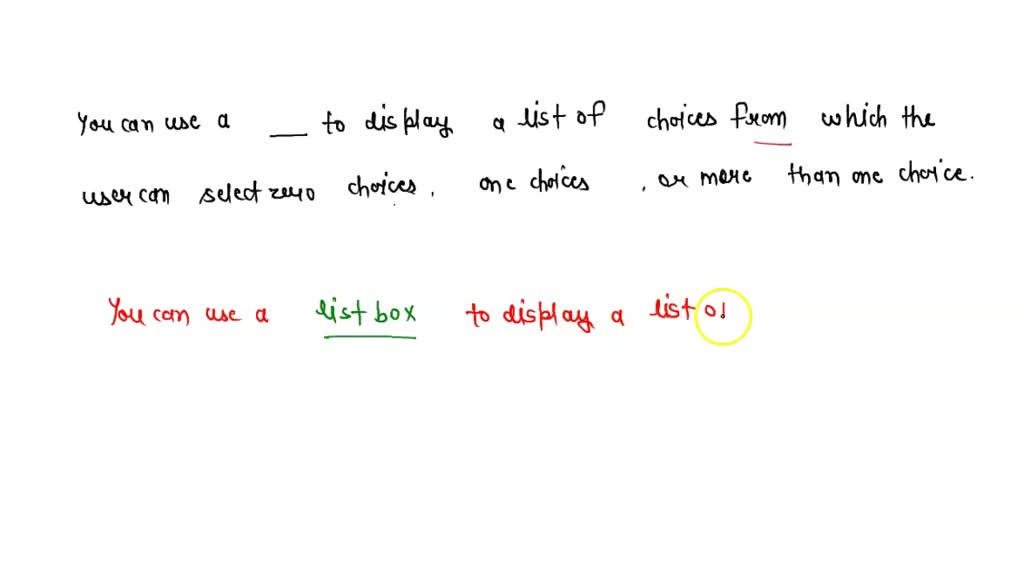 You can use a __ to display a list of choices from which the
user can select zero choices, one choices, or more than one choice.
You can use a list box to display a list of